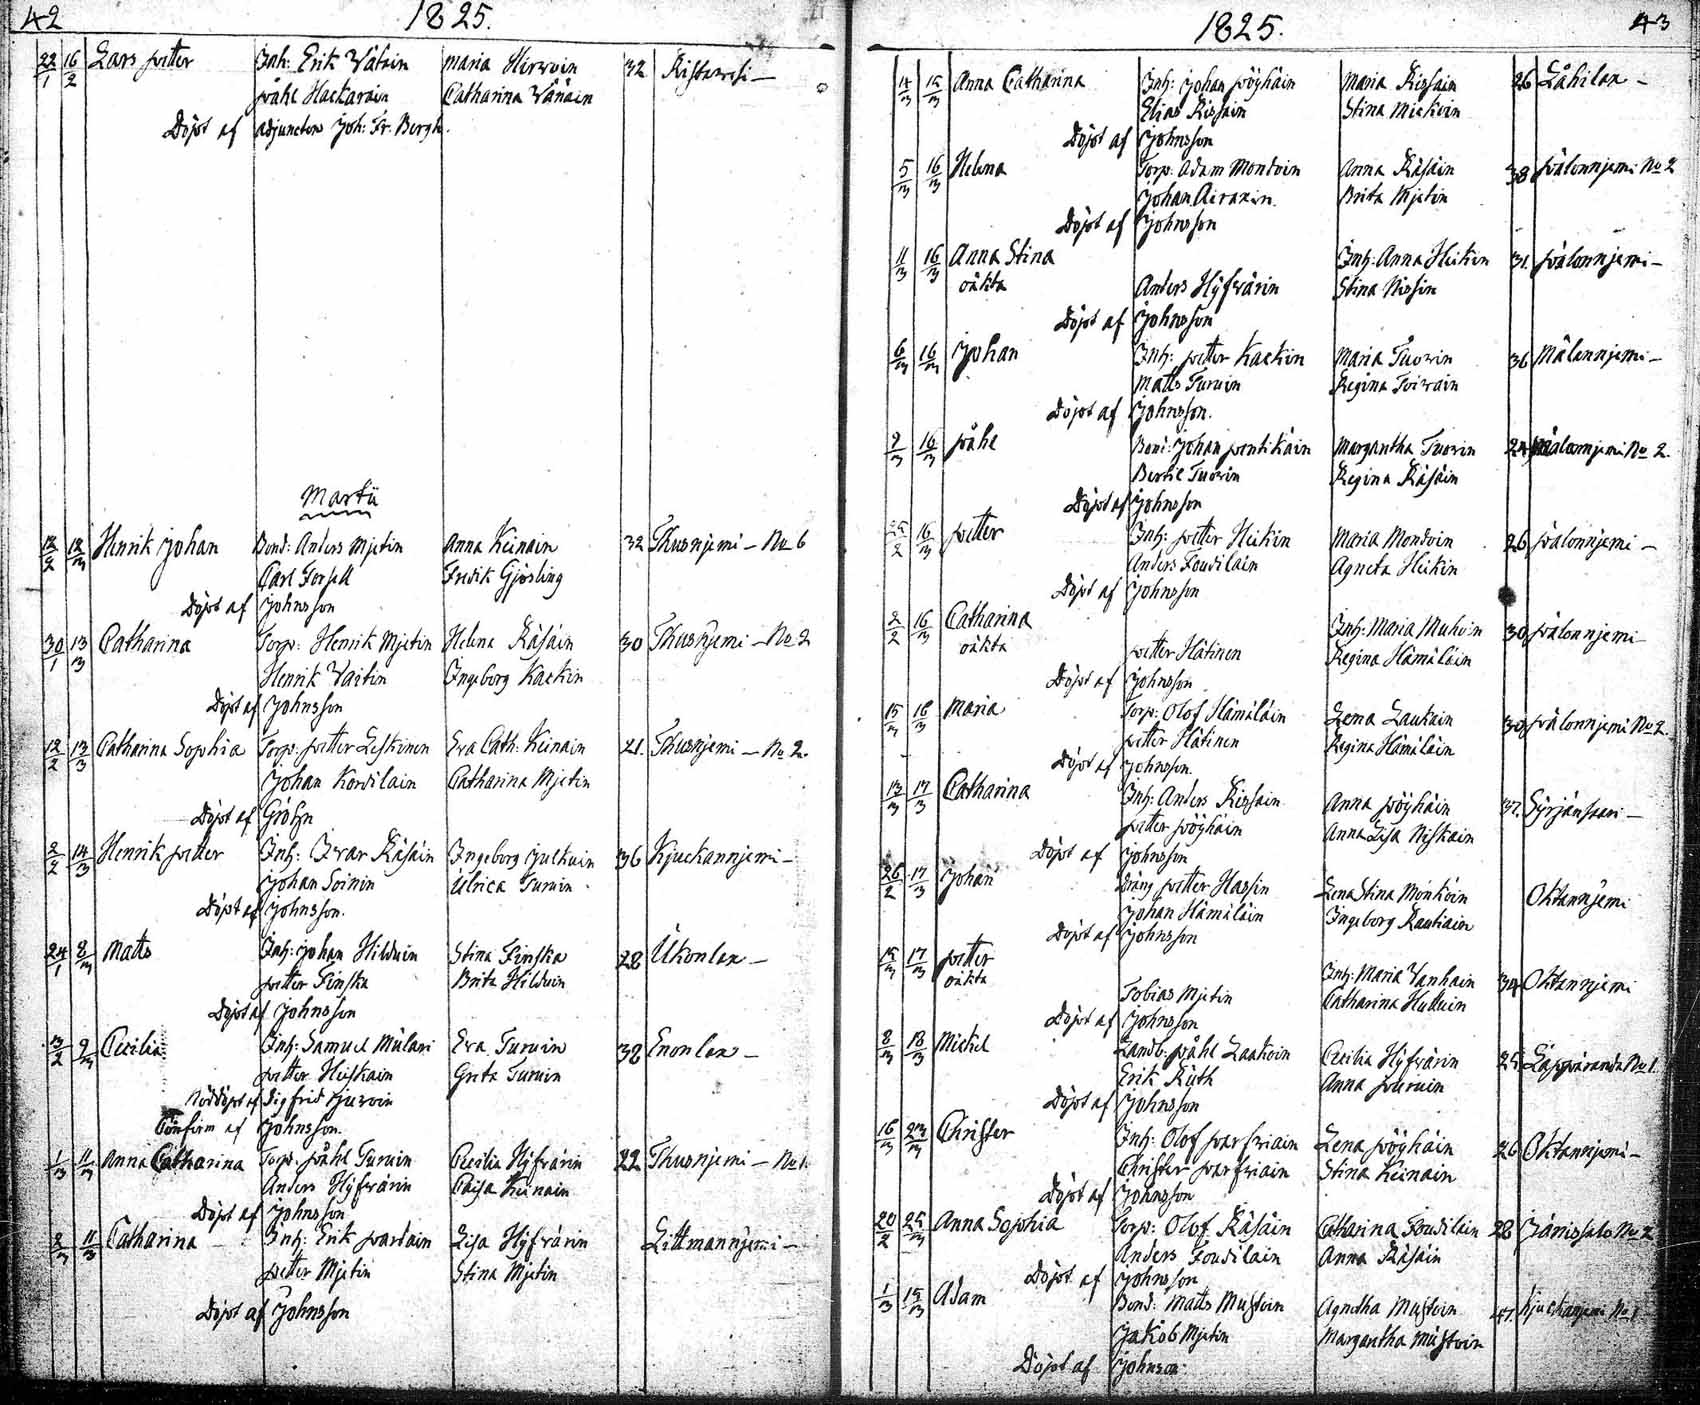 42 1825.
22/1 16/2 Lars petter Inh: Erik Wätäin Maria Hirvoin 32 Ristavesi —
påhl Hackarain Catharina Wänäin
Döpt af adjuncten Joh: Fr. Bergh.
Martii
12/2 12/3 Henrik Johan Bond: Anders Mjetin Anna Keinäin 32 Thusnjemi — No 6
Carl Forsell Fredik Gjösling
Döpt af Johnsson
30/1 13/3 Catharina Torp: Henrik Mjetin Helena Räsäin 30 Thusnjemi — No 2
Henrik Vartin Ingeborg Kackin
Döpt af Johnsson
12/2 13/3 Catharina Sophia Torp: petter Leskinen Eva Cath: Keinäin 21. Thusnjemi — No 2.
Johan Kordilain Catharina Mjetin
Döpt af Gröhn
2/2 14/3 Henrik petter Inh: Ivar Räsäin Ingeborg Julkuin 36 Kjuckannjemi —
Johan Soinin Ulrica Turuin
Döpt af Johnsson.
24/1 8/3 Matts Inh: Johan Hilduin Stina Finska 28 Ukonlax —
petter Finska Brita Hilduin
Döpt af Johnsson
13/2 9/3 Cecilia Inh: Samuel Mülari Eva Turuin 38 Enonlax —
petter Heiskain Greta Turuin
Nöddöpt af Sigfrid Hjurvin
Confirm af Johnsson.
1/3 11/3 Anna Catharina Torp: påhl Turuin Cecilia Hÿfvärin 22 Thusnjemi — No 1.
Anders Hÿfvärin Caisa Keinäin
Döpt af Johnsson
2/3 11/3 Catharina Inh: Erik partain Lisa Hÿfvärin Littmannjemi —
petter Mjetin Stina Mjetin
Döpt af Johnsson
1825. 43
14/3 15/3 Anna Catharina Inh: Johan pöyhäin Maria Rissain 26 Låhilax —
Elias Rissain Stina Mickoin
Döpt af Johnsson
5/3 16/3 Helena Torp: Adam Mondoin Anna Räsäin 38 pälonnjemi No 2
Johan Airaxin Brita Mjetin
Döpt af Johnsson
11/3 16/3 Anna Stina Inh: Anna Heikin 31. pälonnjemi —
oäkta Anders Hÿfvärin Stina Nissin
Döpt af Johnsson
6/3 16/3 Johan Inh: petter Kackin Maria Tuovin 36 Mälonnjemi —
Matts Turuin Regina Toivain
Döpt af Johnsson.
2/3 16/3 påhl Bond: Johan pentikäin Margaretha Tuovin 24 pälonnjemi No 2.
Bertil Tuovin Regina Räsäin
Döpt af Johnsson
25/2 16/3 petter Inh: petter Heikin Maria Mondoin 26 pälonnjemi —
Anders Foudilain Agneta Heikin
Döpt af Johnsson
2/2 16/3 Catharina Inh: Maria Muhoin 30 pälonnjemi
oäkta petter Hätinen Regina Hämäläin
Döpt af Johnsson
15/3 16/3 Maria Torp: Olof Hämäläin Lena Laukain 30 pälonnjemi No 2.
petter Hätinen Regina Hämäläin
Döpt af Johnsson.
13/3 17/3 Catharina Inh: Anders Rissain Anna pöyhäin 37. Syrjänsaari —
petter pöyhäin Anna Lisa Niskain
Döpt af Johnsson
26/2 17/3 Johan Dräng petter Hassin Lena Stina Mönköin Oktannjemi
Johan Hämäläin Ingeborg Rautiain
Döpt af Johnsson
15/3 17/3 petter Inh: Maria Vanhain 34 Oktannjemi
oäkta Tobias Mjetin Catharina Huttuin
Döpt af Johnsson
8/3 18/3 Mickel Landb: påhl Laakoin Cecilia Hÿfvärin 25 Läppäranda No 1.
Erik Rüth Anna puruin
Döpt af Johnsson
16/3 23/3 Christer Inh: Olof parfviain Lena pöyhäin 26 Oktannjemi —
Christer parfviain Stina Keinäin
Döpt af Johnsson
20/2 25/3 Anna Sophia Torp: Olof Räsäin Catharina Foudilain 28 Jänissalo No 2
Anders Foudilain Anna Räsäin
Döpt af Johnsson
1/3 15/3 Adam Bond: Matts Mustoin Agnetha Mustoin 47. Kjuckanjemi No 1
Jakob Mjetin Margaretha Mustoin
Döpt af Johnson